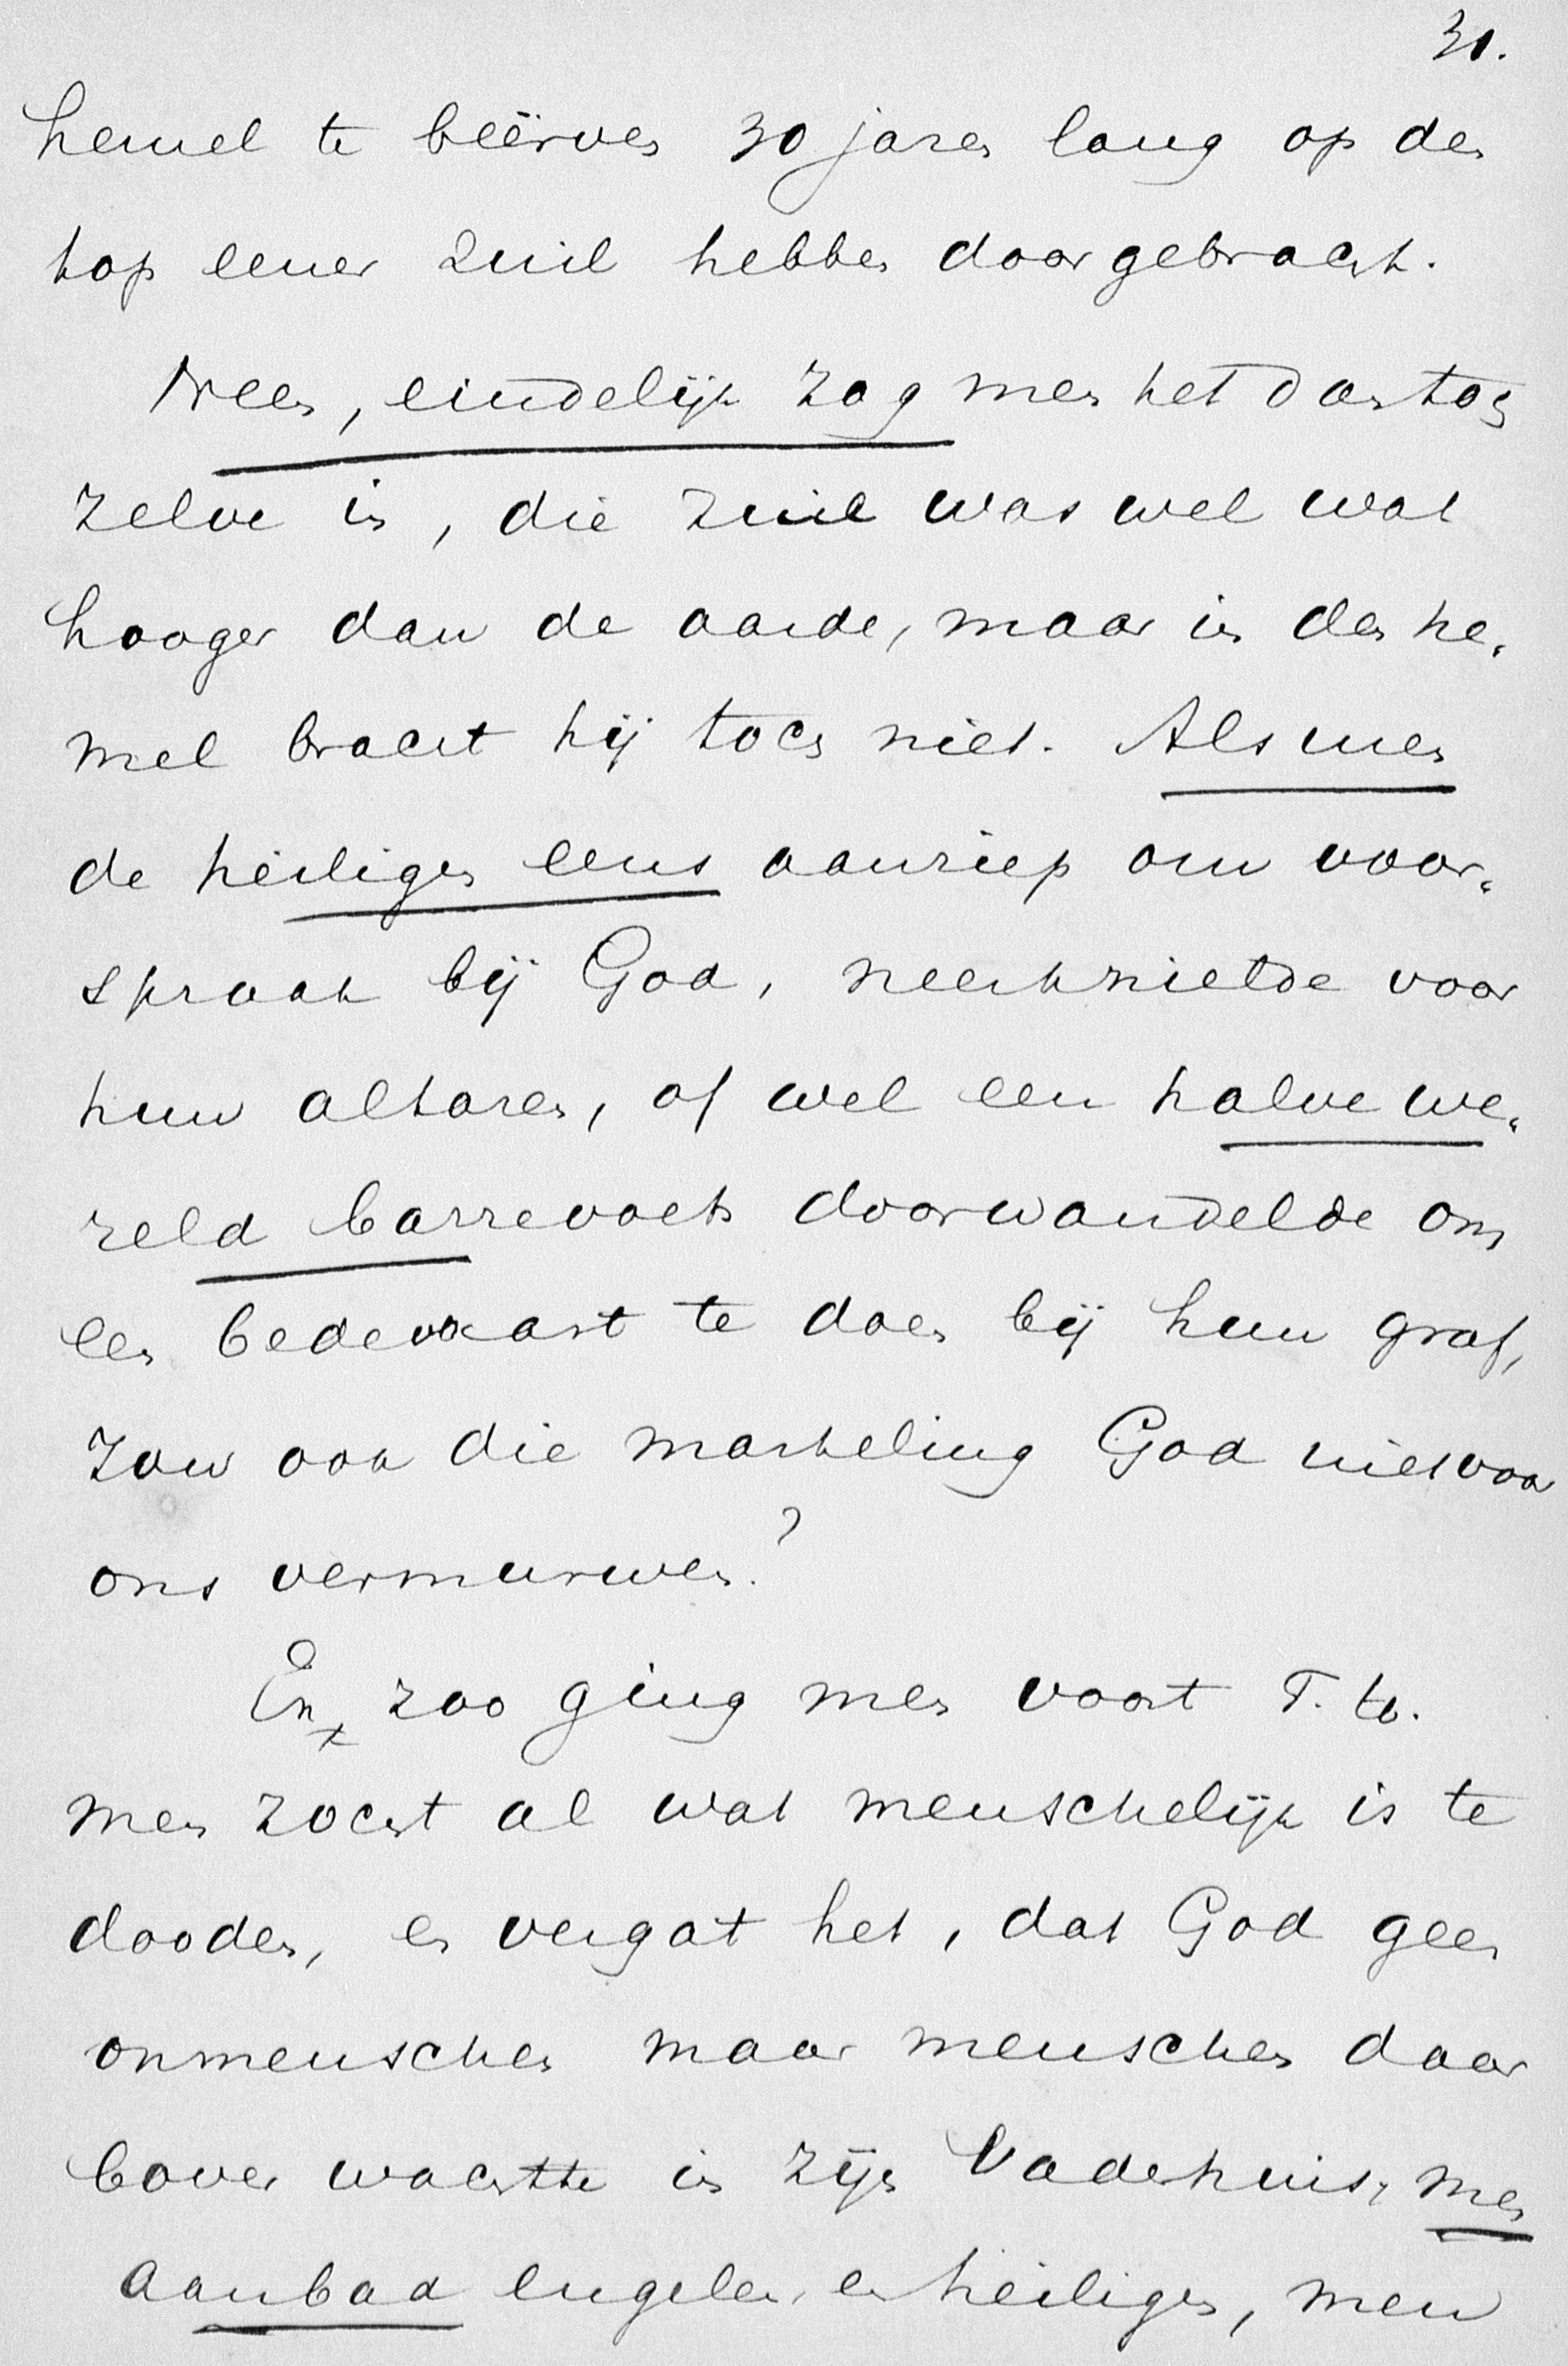 31.
hemel te beërven 30 jaren lang op den
top eener zuil hebben doorgebracht.
Neen, eindelijk zag men het dan toch
zelve in, die zuil was wel wat
hooger dan de aarde, maar in den he-
mel bracht hij toch niet. Als men
de heiligen eens aanriep om voor-
spraak bij God, neerknielde voor
hun altaren, of wel een halve we-
reld barrevoets doorwandelde om
een bedevaart te doen bij hun graf,
zou ook die marteling God niet voor
ons vermurwen?
En zoo ging men voort T. to.
men zocht al wat menschelijk is te
dooden, en vergat het, dat God geen
onmenschen maar menschen daar
boven wachtte in zijn Vaderhuis, men
aanbad engelen en heiligen, men